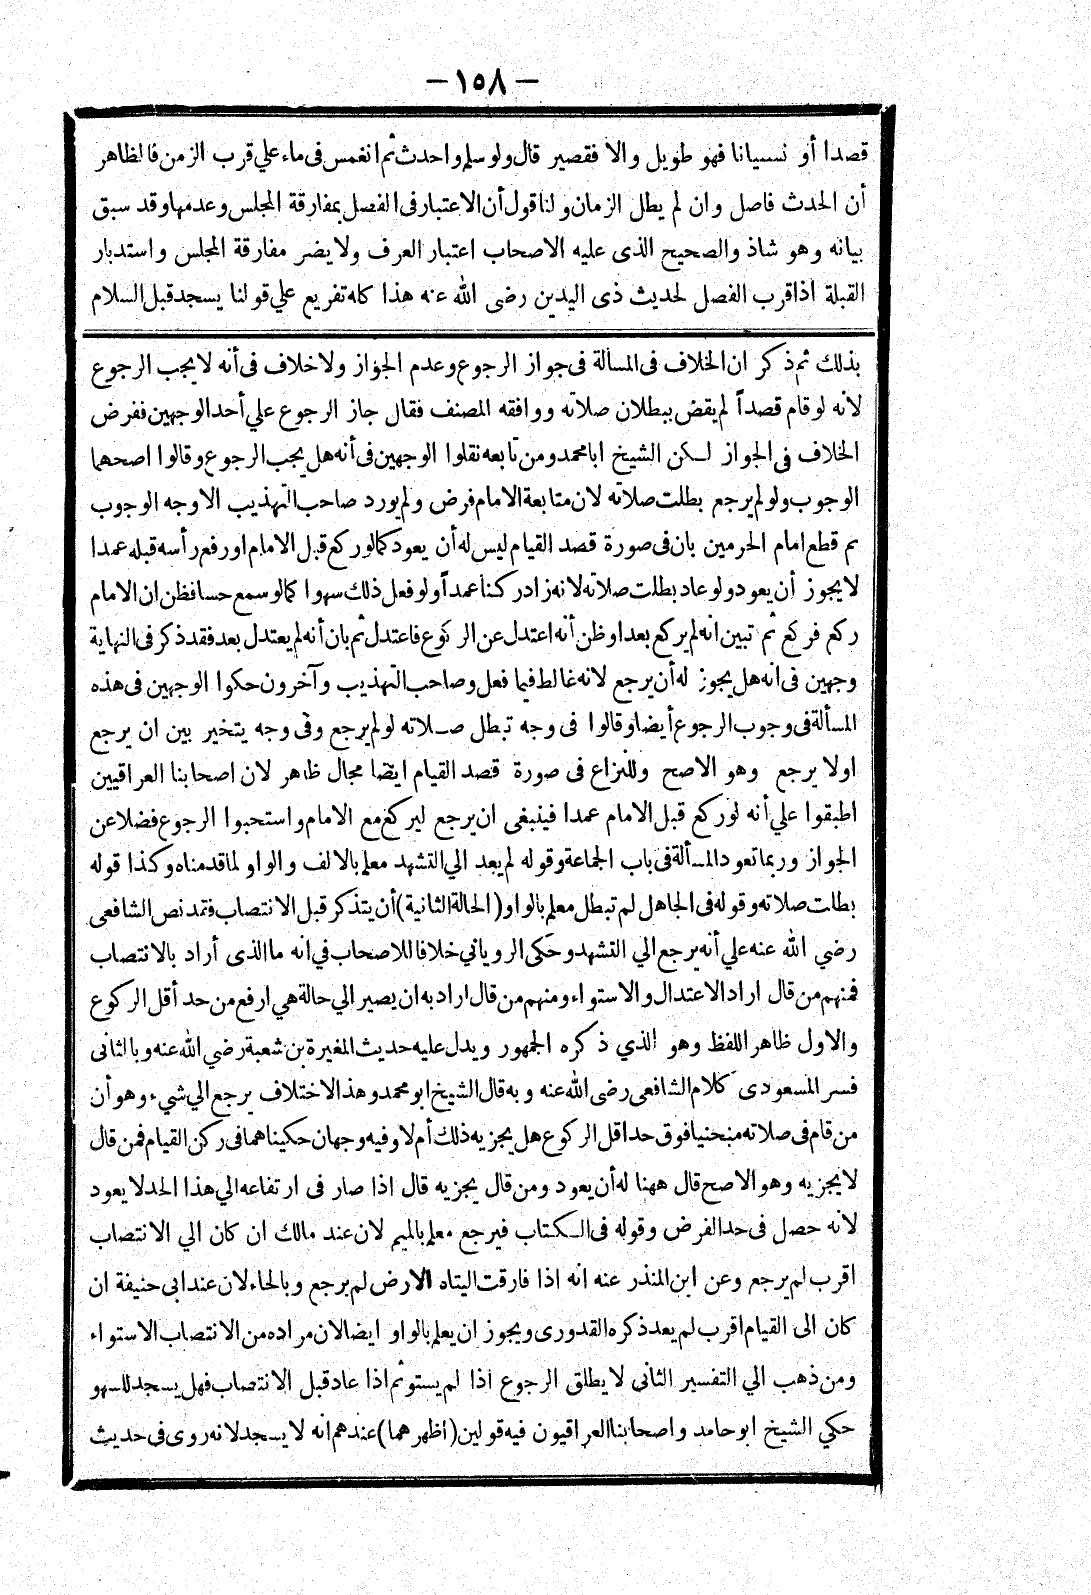 — ١٥٨ —
قصدا أو نسيانا فهو طويل والا فقصير قال ولو سلم واحدث ثم انغمس فى ماء علي قرب الزمن فالظاهر
أن الحدث فاصل وان لم يطل الزمان ولنا قول أن الاعتبار فى الفصل بمفارقة المجلس وعدمها وقد سبق
بيانه وهو شاذ والصحيح الذى عليه الاصحاب اعتبار العرف ولا يضر مفارقة المجلس واستدبار
القبلة اذا قرب الفصل لحديث ذى اليدين رضى الله عنه هذا كله تفريع علي قولنا يسجد قبل السلام
بذلك ثم ذكر ان الخلاف فى المسألة فى جواز الرجوع وعدم الجواز ولا خلاف فى أنه لا يجب الرجوع
لانه لو قام قصداً لم يقض ببطلان صلاته ووافقه المصنف فقال جاز الرجوع علي أحد الوجهين ففرض
الخلاف فى الجواز لكن الشيخ ابا محمد ومن تابعه نقلوا الوجهين فى أنه هل يجب الرجوع وقالوا اصحهما
الوجوب ولو لم يرجع بطلت صلاته لان متابعة الامام فرض ولم يورد صاحب التهذيب الا وجه الوجوب
ثم قطع امام الحرمين بان فى صورة قصد القيام ليس له أن يعود كما لو ركع قبل الامام او رفع رأسه قبله عمدا
لا يجوز أن يعود ولو عاد بطلت صلاته لانه زاد ركنا عمداً ولو فعل ذلك سهوا كما لو سمع حسا فظن ان الامام
ركع فركع ثم تبين انه لم يركع بعد او ظن أنه اعتدل عن الركوع فاعتدل ثم بان أنه لم يعتدل بعد فقد ذكر فى النهاية
وجهين فى انه هل يجوز له أن يرجع لانه غالط فيما فعل وصاحب التهذيب وآخرون حكوا الوجهين فى هذه
المسألة فى وجوب الرجوع أيضا وقالوا فى وجه تبطل صلاته لو لم يرجع وفى وجه يتخير بين ان يرجع
اولا يرجع وهو الاصح وللنزاع فى صورة قصد القيام ايضا مجال ظاهر لان اصحابنا العراقيين
اطبقوا علي أنه لو ركع قبل الامام عمدا فينبغى ان يرجع ليركع مع الامام واستحبوا الرجوع فضلا عن
الجواز وربما تعود المسألة فى باب الجماعة وقوله لم يعد الي التشهد معلم بالالف والواو لما قدمناه وكذا قوله
بطلت صلاته وقوله فى الجاهل لم تبطل معلم بالواو (الحالة الثانية) أن يتذكر قبل الانتصاب فقد نص الشافعى
رضي الله عنه علي أنه يرجع الي التشهد وحكى الروياني خلافا للاصحاب في انه ما الذى أراد بالانتصاب
فمنهم من قال اراد الاعتدال والاستواء ومنهم من قال اراد به ان يصير الي حالة هي ارفع من حد أقل الركوع
والاول ظاهر اللفظ وهو الذي ذكره الجمهور ويدل عليه حديث المغيرة بن شعبة رضي الله عنه وبالثانى
فسر المسعودى كلام الشافعى رضى الله عنه وبه قال الشيخ ابو محمد وهذا الاختلاف يرجع الي شيء وهو أن
من قام فى صلاته منحنيا فوق حد اقل الركوع هل يجزيه ذلك أم لا وفيه وجهان حكيناهما فى ركن القيام فمن قال
لا يجزيه وهو الاصح قال ههنا له أن يعود ومن قال يجزيه قال اذا صار فى ارتفاعه الي هذا الحد لا يعود
لانه حصل فى حد الفرض وقوله فى الكتاب فيرجع معلم بالميم لان عند مالك ان كان الي الانتصاب
اقرب لم يرجع وعن ابن المنذر عنه انه اذا فارقت اليتاه الارض لم يرجع وبالحاء لان عند ابى حنيفة ان
كان الى القيام اقرب لم يعد ذكره القدورى ويجوز ان يعلم بالواو ايضا لان مراده من الانتصاب الاستواء
ومن ذهب الي التفسير الثانى لا يطلق الرجوع اذا لم يستو ثم اذا عاد قبل الانتصاب فهل يسجد للسهو
حكي الشيخ ابو حامد واصحابنا العراقيون فيه قولين (اظهرهما) عندهم انه لا يسجد لانه روى فى حديث